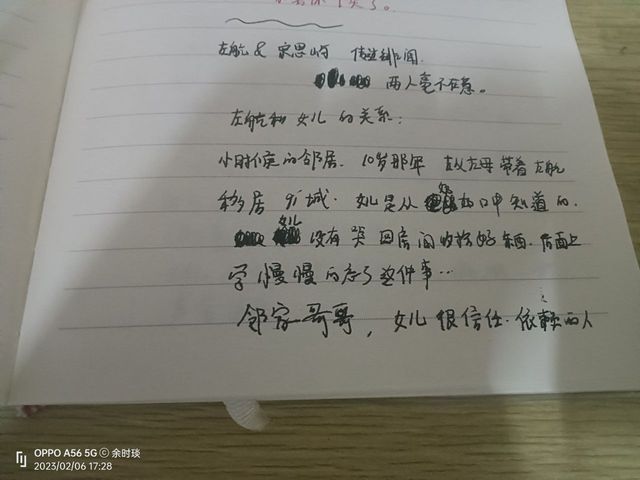 左航 & 宋思屿 传进绯闻.
两人毫不在意。
左航和 女儿 的关系:
小时候的邻居. 10岁那年 左父左母 带着左航
移居 圹城. 女儿是从 妈妈口中知道的.
女儿 没有哭 回房间收拾好东西. 后面上
学慢慢的忘了这件事…
邻家哥哥, 女儿很信任.依赖的人
OPPO A56 5G © 余时琰
2023/02/06 17:28